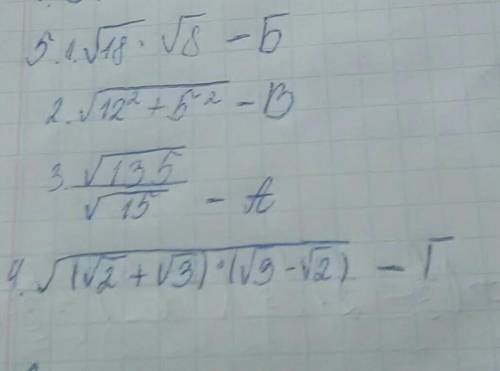 5. 1. √18 · √8 – Б
2. √(12² + 5²) – В
3. √135 / √15 – А
4. √((√2 + √3) · (√3 - √2)) – Г